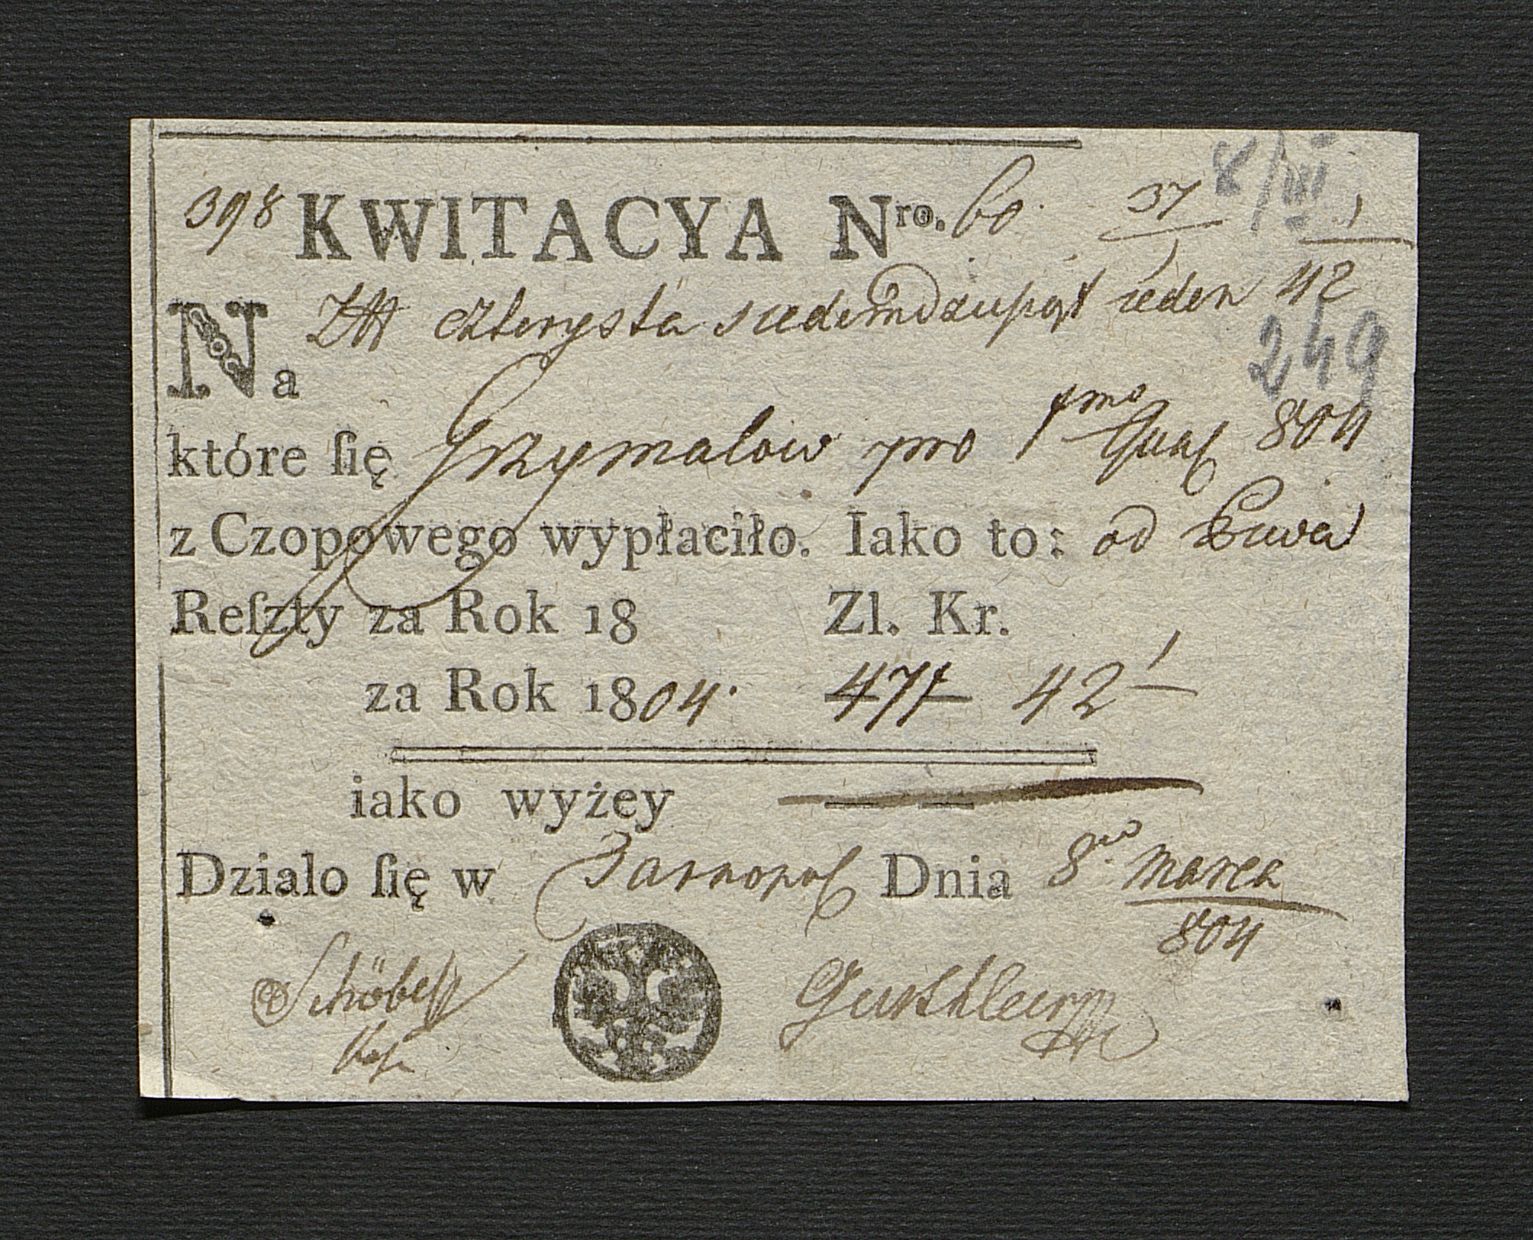 398 KWITACYA Nro. 60. 37 8/III
Na ZłR czterysta siedemdziesiąt ieden 42
249
które ſię Grzymalow pro 1mo Quar 804
z Czopowego wypłaciło. Iako to: od Piwa
Reſzty za Rok 18 Zl. Kr.
za Rok 1804. 471 42 1
iako wyżey
Działo ſię w Tarnopol Dnia 8go Marca
804
Schöbel